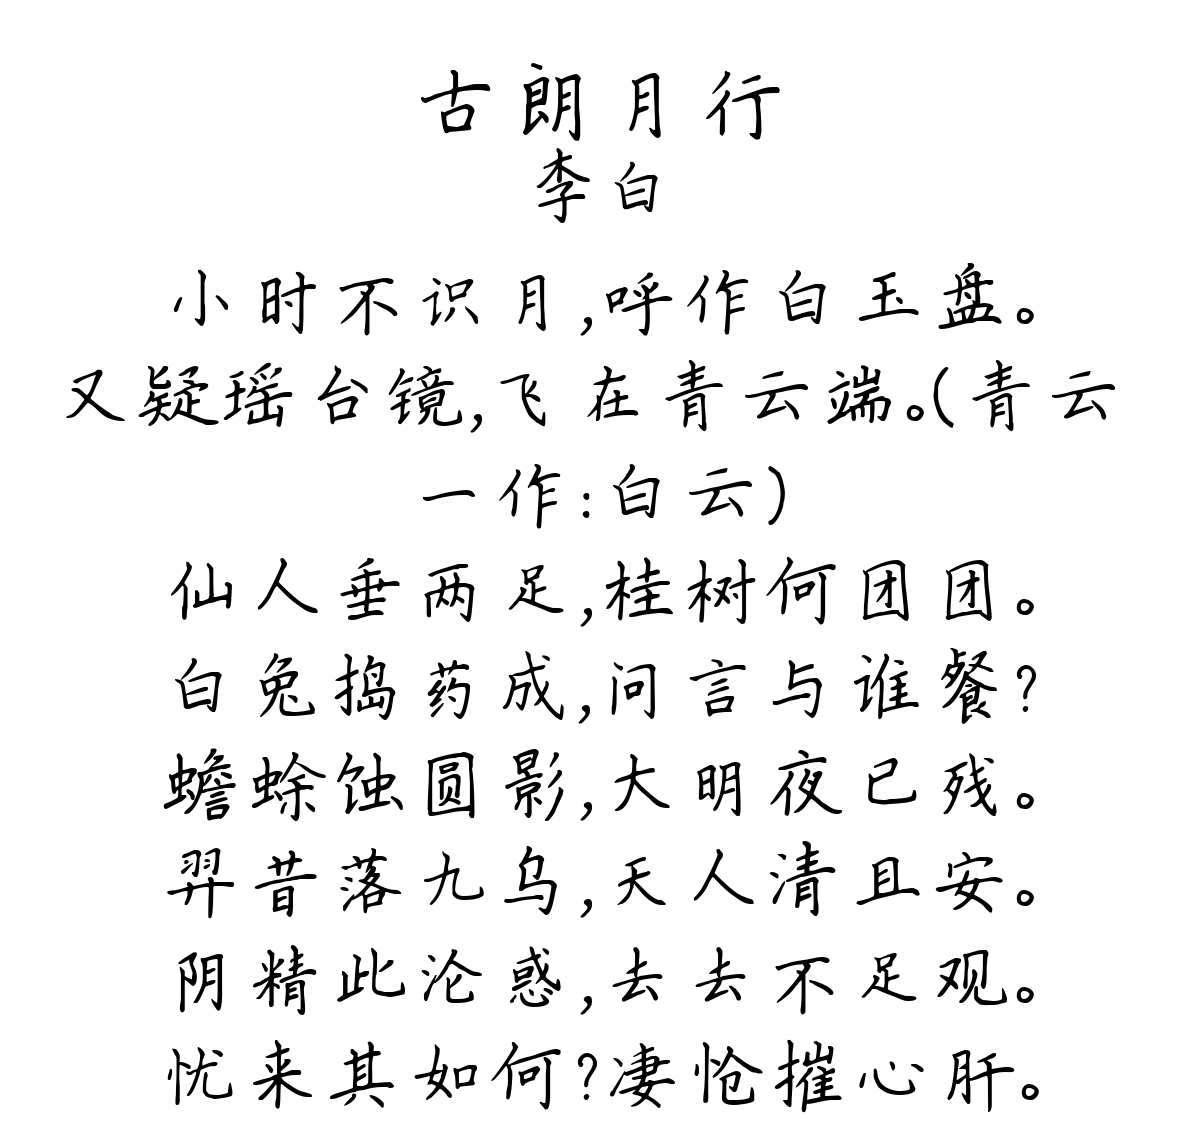 古朗月行
李白
小时不识月,呼作白玉盘。
又疑瑶台镜,飞在青云端。(青云
一作:白云)
仙人垂两足,桂树何团团。
白兔捣药成,问言与谁餐?
蟾蜍蚀圆影,大明夜已残。
羿昔落九乌,天人清且安。
阴精此沦惑,去去不足观。
忧来其如何?凄怆摧心肝。